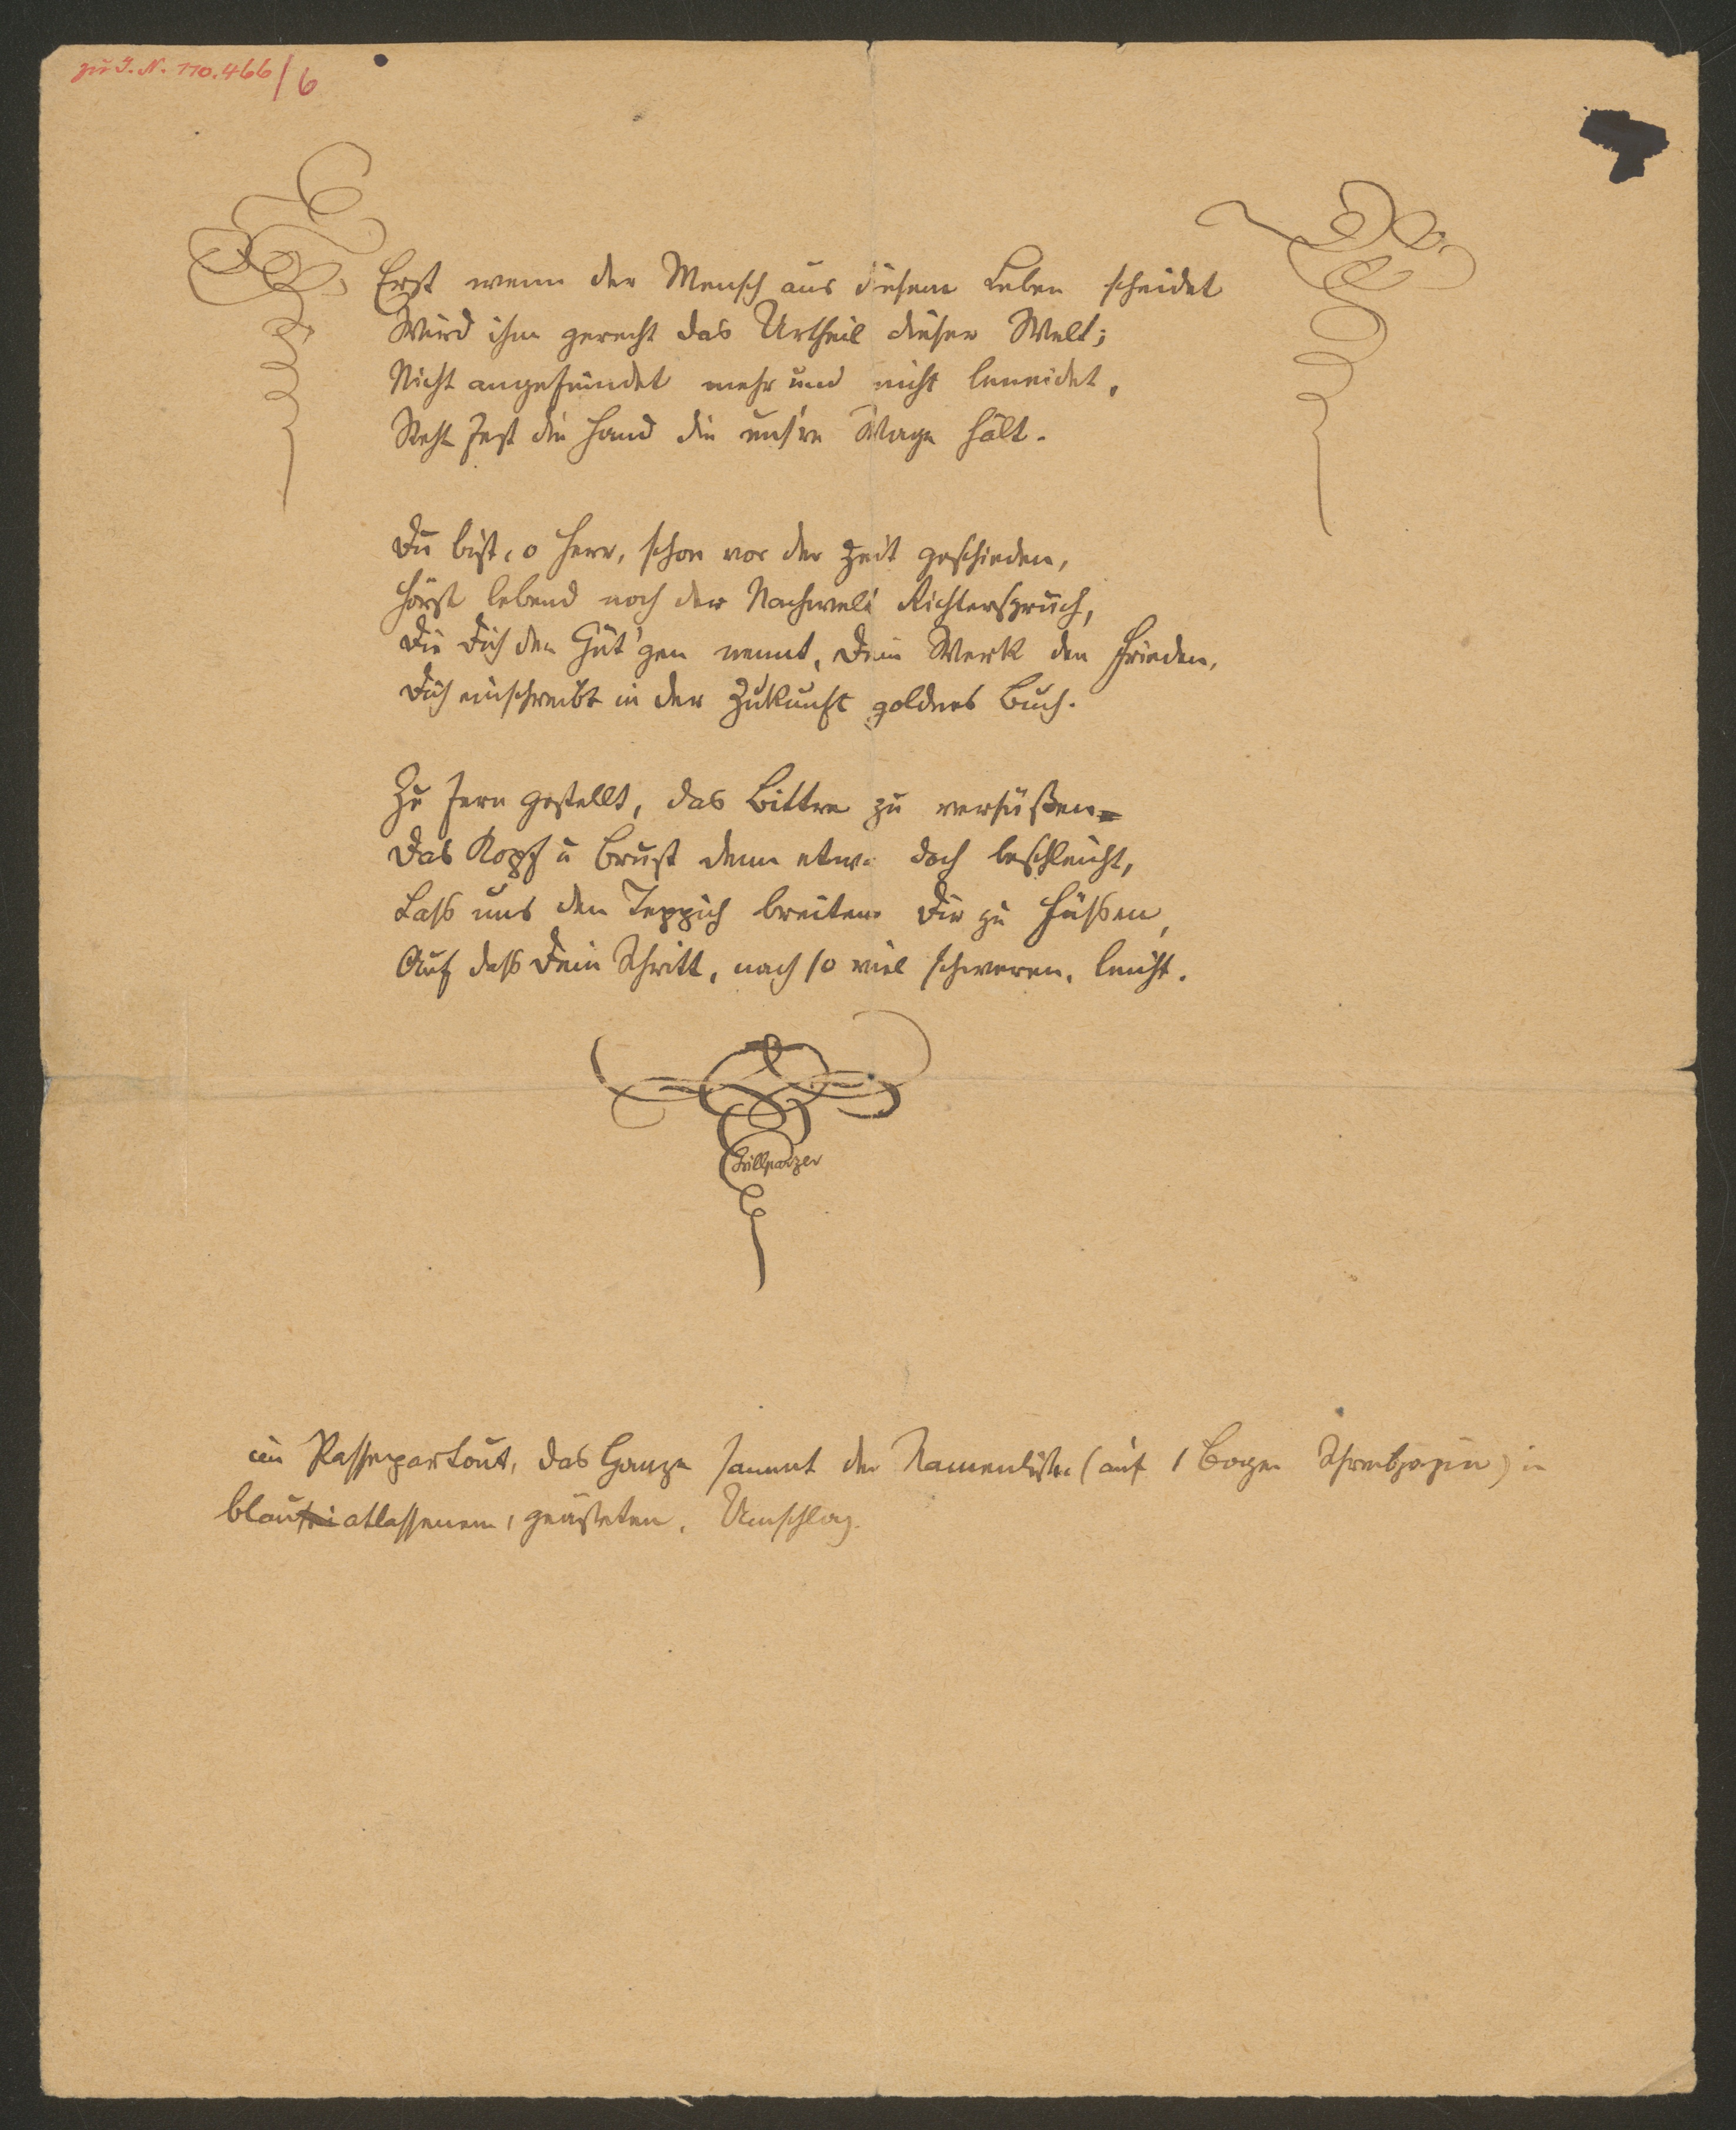 zu I. N. 110.466/6
Erst wenn der Mensch aus diesem Leben scheidet
Wird ihm gerecht das Urtheil dieser Welt;
Nicht angefeindet mehr und nicht beneidet,
Steht fest die Hand die uns're Wage hält.
Du bist, o Herr, schon vor der Zeit geschieden,
Hörst lebend noch der Nachwelt Richterspruch,
Die Dich den Güt'gen nennt, Dein Werk den Frieden,
Dich einschreibt in der Zukunft goldnes Buch.
Zu fern gestellt, das Bittre zu versüßen
Das Kopf u Brust denn etwa doch beschleicht,
Lass uns den Teppich breiten Dir zu Füssen,
Auf dass Dein Schritt, nach so viel schweren, leicht.
Grillparzer
im Passepartout, das Ganze sammt der Namenliste (auf 1 Bogen Schreibpapier) in
blau atlassenem, Umschlag.